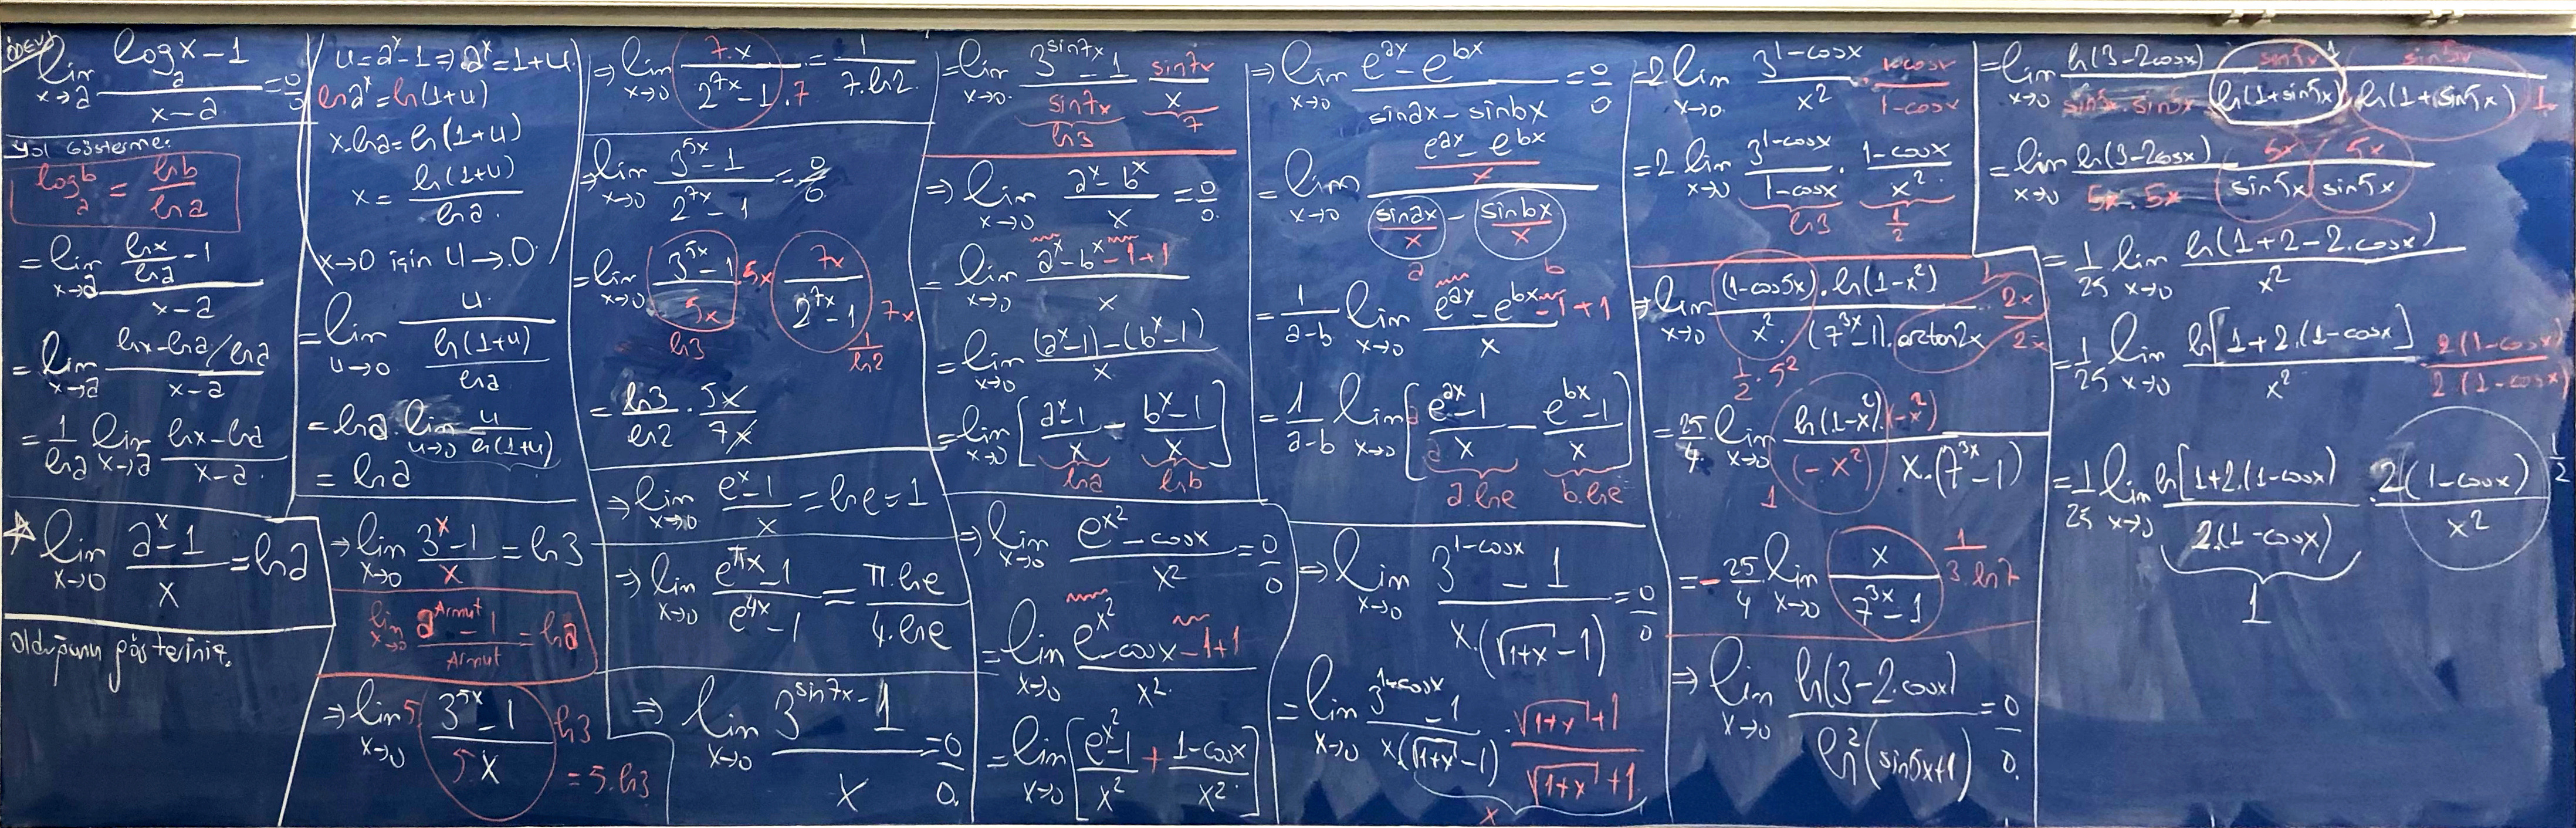 ÖDEV
lim x→a (log_a x - 1)/(x-a) = 0/0
Yol Gösterme:
log_a b = ln b / ln a
= lim x→a (lnx/lna - 1)/(x-a)
= lim x→a (lnx - lna / lna)/(x-a)
= 1/lna lim x→a (lnx - lna)/(x-a)
☆ lim x→0 (a^x - 1)/x = lna
olduğunu gösteriniz.
u = a^x - 1 ⇒ a^x = 1+u
ln a^x = ln(1+u)
x.lna = ln(1+u)
x = ln(1+u)/lna
x→0 için u→0
= lim u→0 u/(ln(1+u)/lna)
= lna. lim u→0 u/ln(1+u)
= lna
⇒ lim x→0 (3^x - 1)/x = ln3
lim x→0 (a^Armut - 1)/Armut = lna
⇒ lim x→0 5 (3^5x - 1)/(5.x) ln3
= 5.ln3
⇒ lim x→0 7.x/(2^7x - 1).7 = 1/(7.ln2)
⇒ lim x→0 (3^5x - 1)/(2^7x - 1) = 0/0
= lim x→0 (3^5x - 1)/5x .5x 7x/(2^7x - 1) 7x
ln3 1/ln2
= ln3/ln2 . 5x/7x
⇒ lim x→0 (e^x - 1)/x = lne = 1
⇒ lim x→0 (e^πx - 1)/(e^4x - 1) = π.lne/4.lne
⇒ lim x→0 (3^sin7x - 1)/x = 0/0
= lim x→0 (3^sin7x - 1)/sin7x sin7x/x
ln3 7
⇒ lim x→0 (a^x - b^x)/x = 0/0
= lim x→0 (a^x - b^x - 1 + 1)/x
= lim x→0 ((a^x - 1) - (b^x - 1))/x
= lim x→0 [(a^x - 1)/x - (b^x - 1)/x]
lna lnb
⇒ lim x→0 (e^x² - cosx)/x² = 0/0
= lim x→0 (e^x² - cosx - 1 + 1)/x²
= lim x→0 [(e^x² - 1)/x² + (1-cosx)/x²]
⇒ lim x→0 (e^ax - e^bx)/(sinax - sinbx) = 0/0
= lim x→0 ((e^ax - e^bx)/x)/(sinax/x - sinbx/x)
a b
= 1/(a-b) lim x→0 (e^ax - e^bx - 1 + 1)/x
= 1/(a-b) lim x→0 [(e^ax - 1)/x - (e^bx - 1)/x]
a.lne b.lne
⇒ lim x→0 (3^1-cosx - 1)/(x.(√(1+x) - 1)) = 0/0
= lim x→0 (3^1-cosx - 1)/(x(√(1+x) - 1)) . (√(1+x) + 1)/(√(1+x) + 1)
x
= 2 lim x→0 3^1-cosx/x² . (1-cosx)/(1-cosx)
= 2 lim x→0 3^1-cosx/(1-cosx) . (1-cosx)/x²
ln3 1/2
⇒ lim x→0 (1-cos5x).ln(1-x²)/(x².(7^3x - 1).arctan2x) 2x/2x
1/2 . 5²
= 25/4 . lim x→0 ln(1-x²).(-x²)/((-x²) x.(7^3x - 1))
1
= -25/4 . lim x→0 x/(7^3x - 1) 1/(3.ln7)
⇒ lim x→0 ln(3-2.cosx)/ln²(sin5x+1) = 0/0
= lim x→0 ln(3-2cosx)/(sin5x.sin5x) sin5x/ln(1+sin5x) sin5x/ln(1+sin5x) 1
= lim x→0 ln(3-2cosx)/(5x.5x) 5x/sin5x 5x/sin5x
= 1/25 lim x→0 ln(1+2-2.cosx)/x²
= 1/25 lim x→0 ln[1+2.(1-cosx)]/x² 2(1-cosx)/2(1-cosx)
= 1/25 lim x→0 ln[1+2.(1-cosx)/2.(1-cosx) . 2(1-cosx)/x² 1/2
1